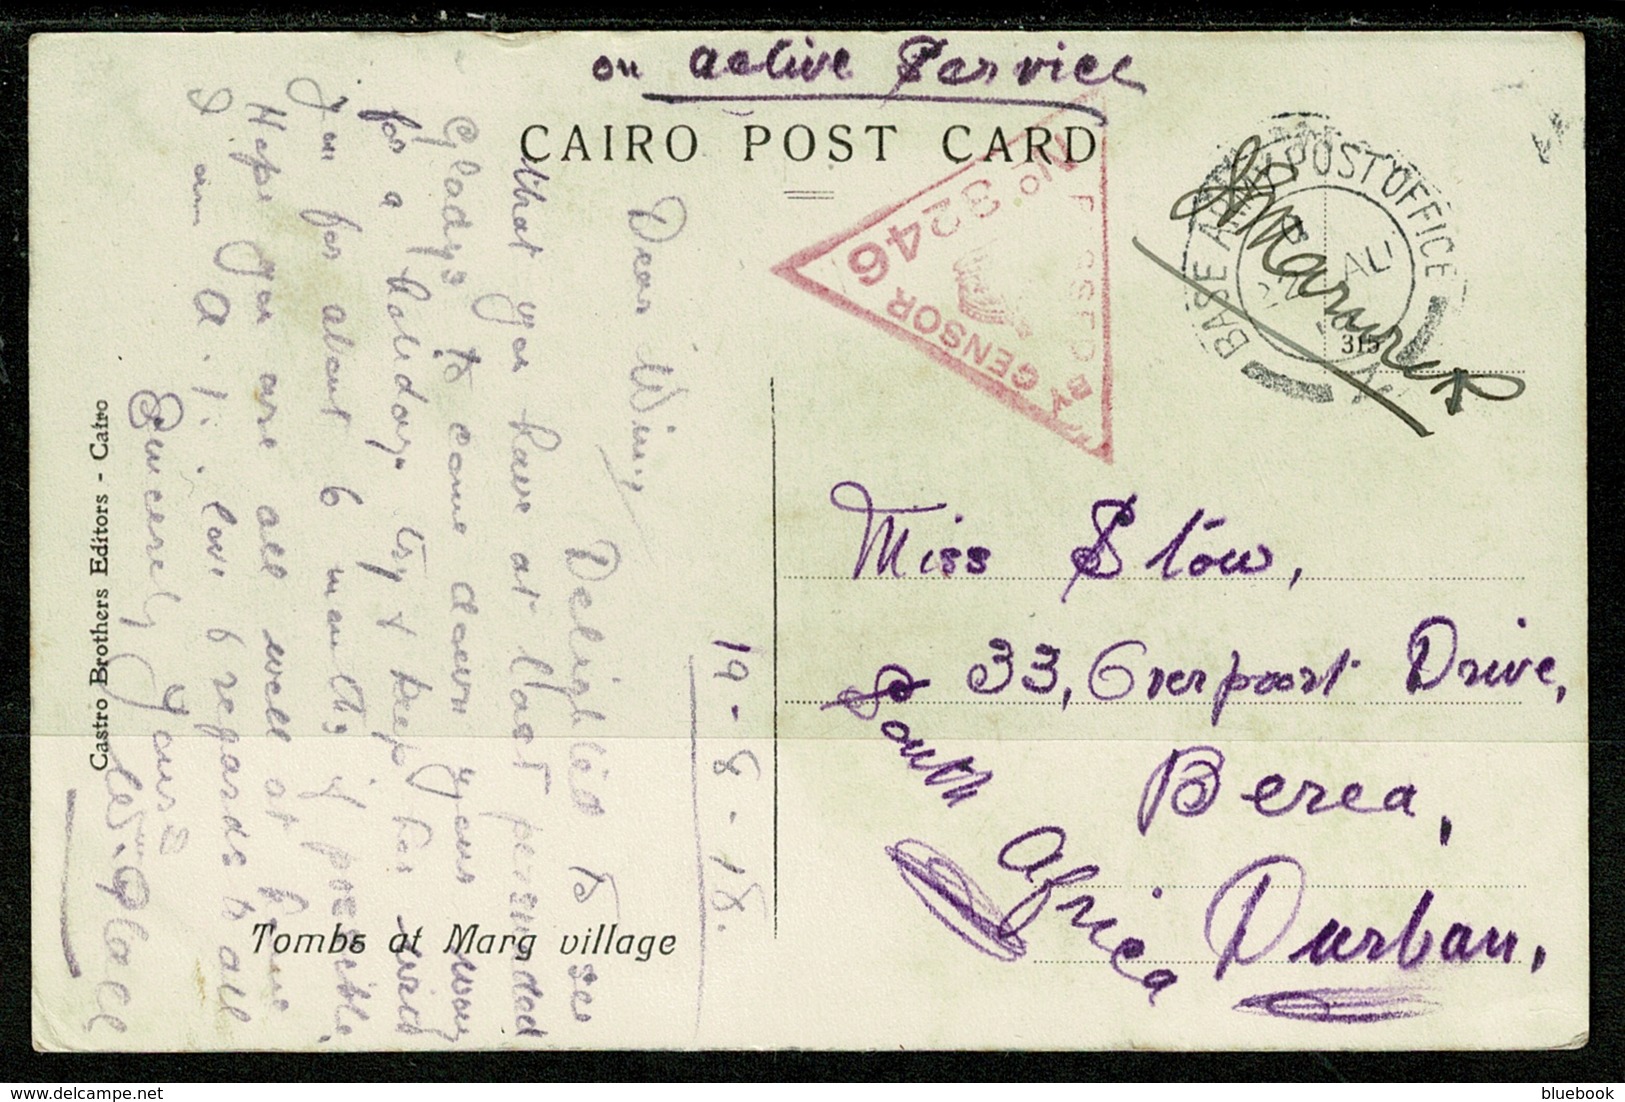 on active Service
CAIRO POST CARD
PASSED
BY CENSOR
No 3246
BASE ARMY POST OFFICE
AU
315
19-8-18.
Dear Winy
Delighted to see
that you have at last persuaded
Gladys to come down your way
for a holiday. try & keep her with
you for about 6 months if possible.
Hope you are all well at home
I am A.1. love & regards to all
Sincerely yours
Castro Brothers Editors - Cairo
Tombs at Marg village
Miss Stow,
33, Overport Drive,
Berea,
Durban,
South Africa
bluebook